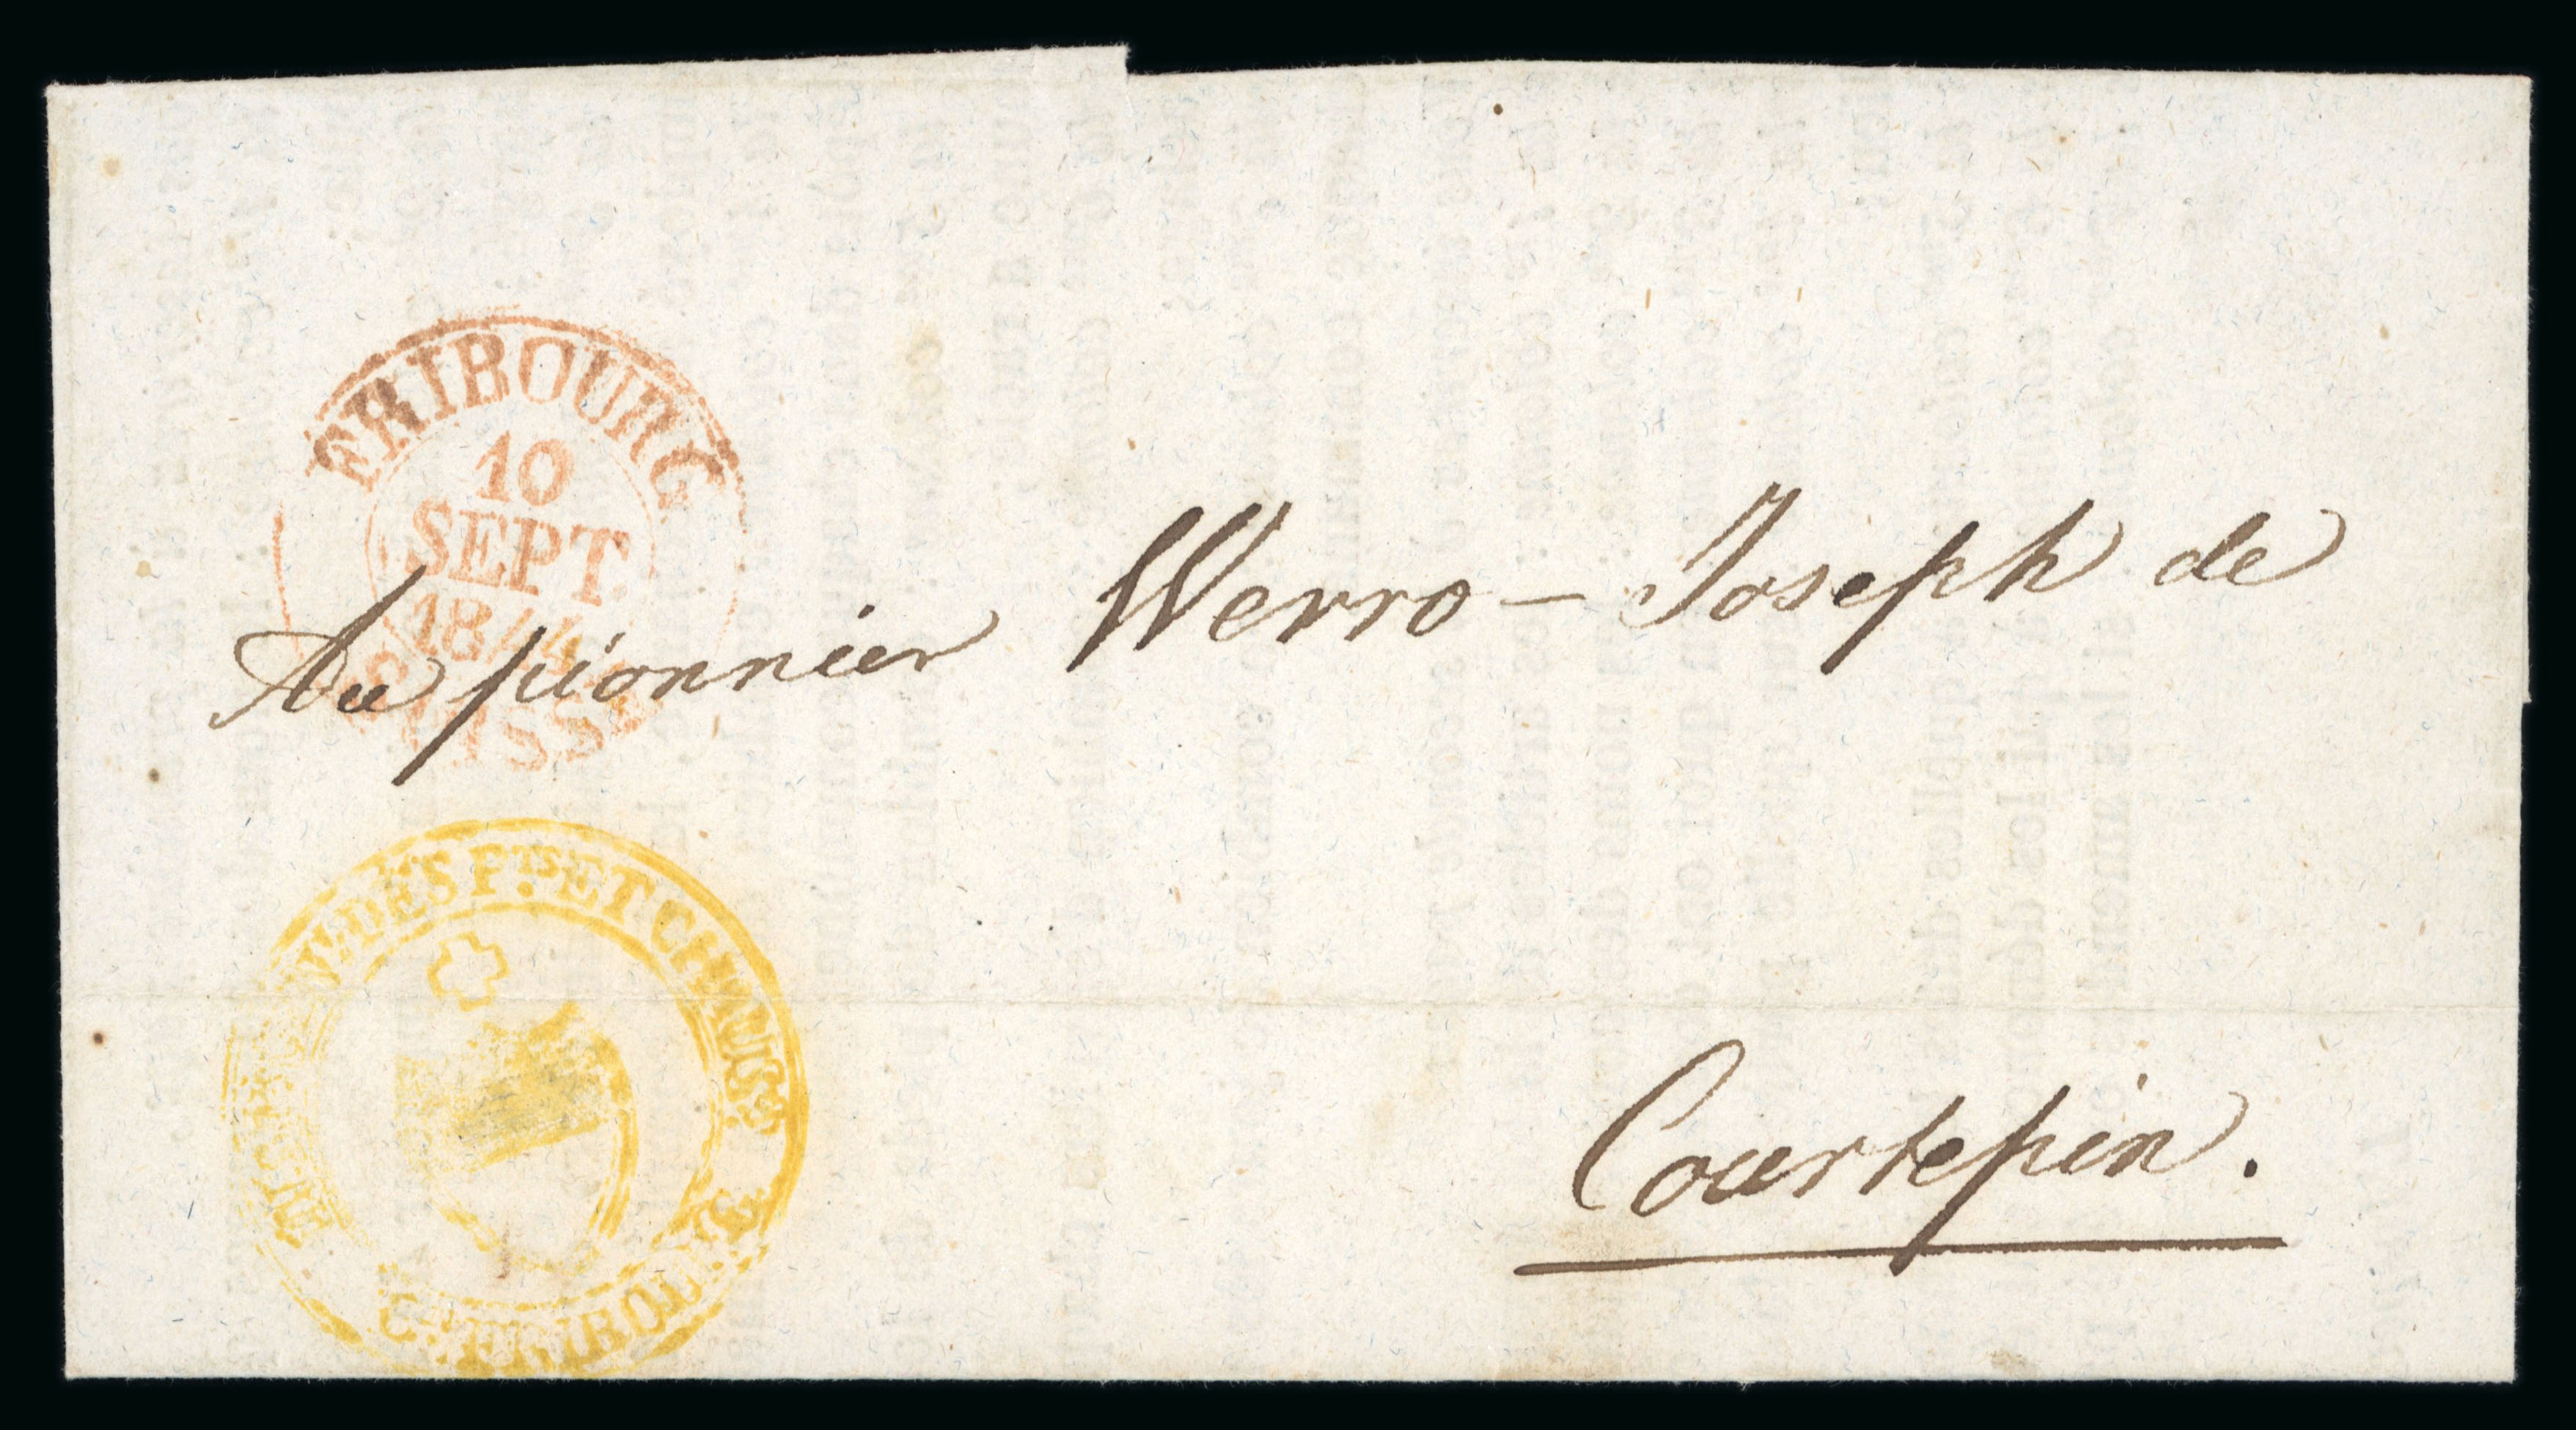 FRIBOURG
10
SEPT.
1844
SUISSE
Au pionnier Werro – Joseph de
Courtepin.
DES P.TS ET CHAUS
C.ON FRIBOURG